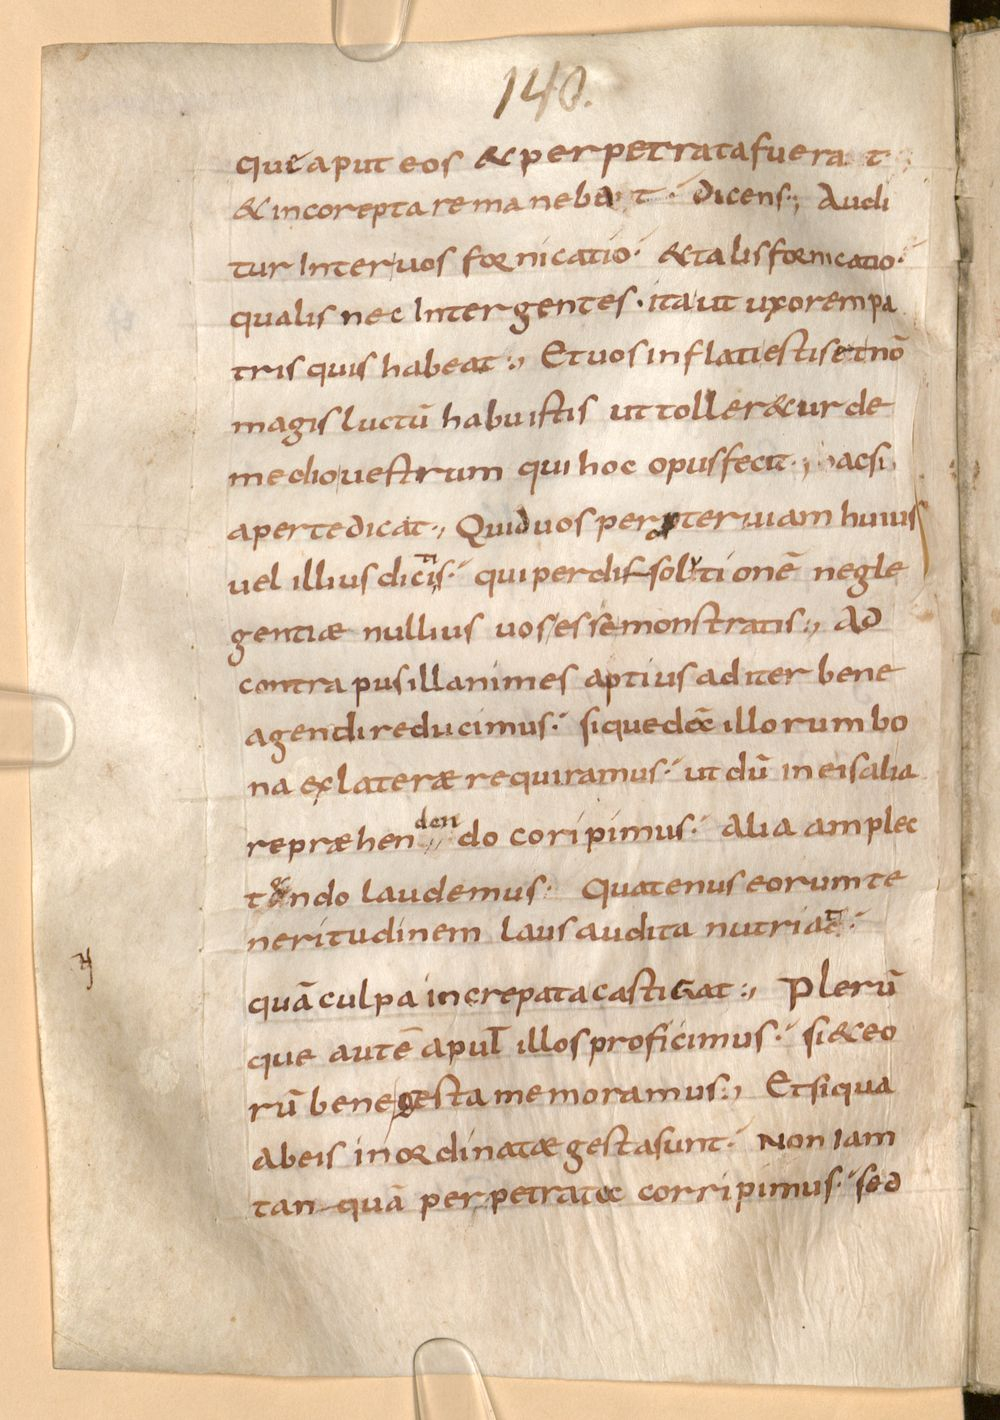 140.
que aput eos & perpetrata fuerat
& incorepta remanebat · dicens ·, Audi
tur Inter vos fornicatio · & talis fornicatio ·
qualis nec Inter gentes · ita ut uxorem pa
tris quis habeat ·, Et vos inflati estis et nō
magis luctū habuistis ut toller&ur de
medio vestrum qui hoc opus fecit ·, acsi
aperte dicat ·, Quid vos per prter uiam huius
vel illius dicitis · qui per dissolutionē negle
gentiæ nullius vos esse monstratis ·, Ad
contra pusillanimes aptius ad iter bene
agendi reducimus · si quedā illorum bo
na ex lateræ requiramus · ut dū in eis alia
repræhendendo coripimus · Alia amplec
tendo laudemus · Quatenus eorum te
neritudinem laus audita nutriat ·
quā culpa increpata castigat ·, Plerū
que autē apud illos proficimus · si & eo
rū bene gesta memoramus ·, Et si qua
ab eis inordinatæ gesta sunt · Non Iam
tanquā perpetrata corripimus · sed